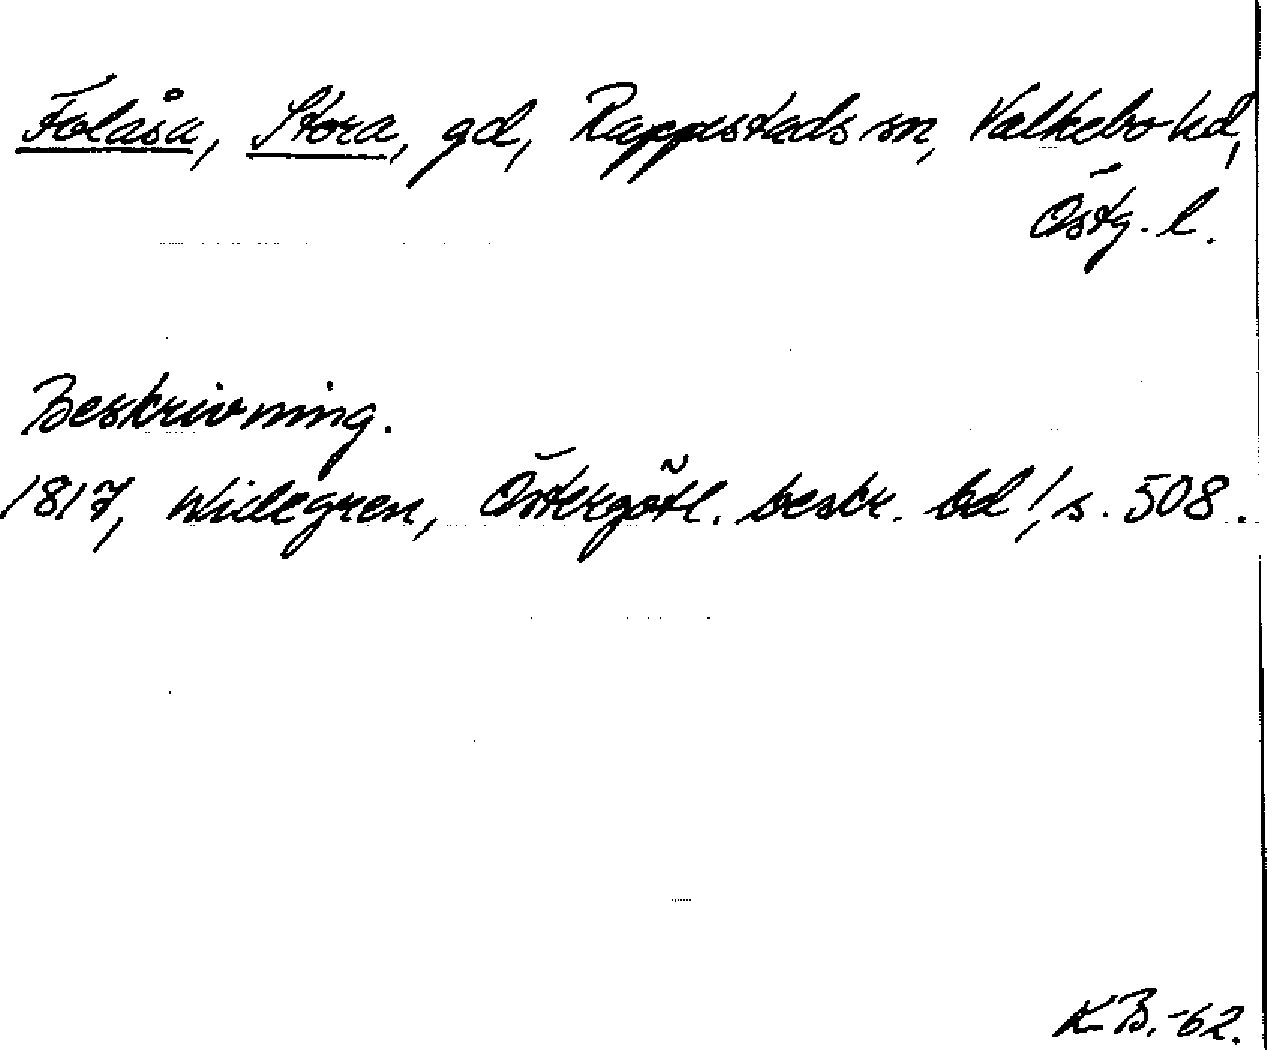 Folåsa, Stora, gd, Rappestads sn, Valkebo hd,
Östg. l.
Beskrivning.
1817, Widegren, Östergötl. beskr. bd 1, s. 508.
K.B.-62.